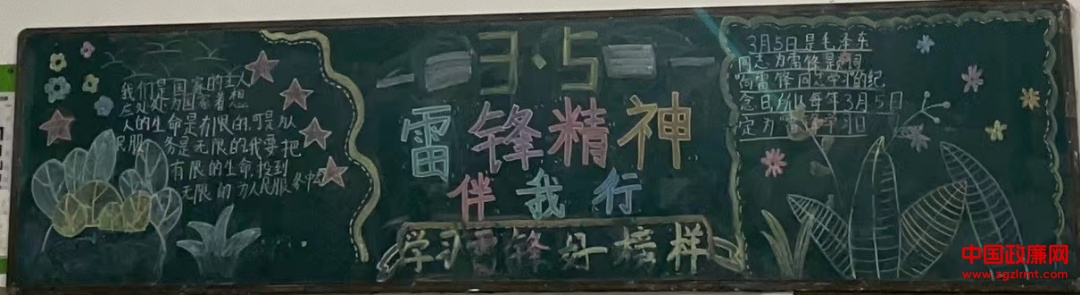 我们是国家的主人
应处处为国家着想
人的生命是有限的,可是为
人民服务是无限的我要把
有限的生命,投到
无限的为人民服务中
3·5
雷锋精神
伴我行
学习雷锋好榜样
3月5日是毛泽东
同志为雷锋题词
向雷锋同志学习的纪
念日所以每年3月5日
定为雷锋日
中国政廉网
www.zgzlrmt.com